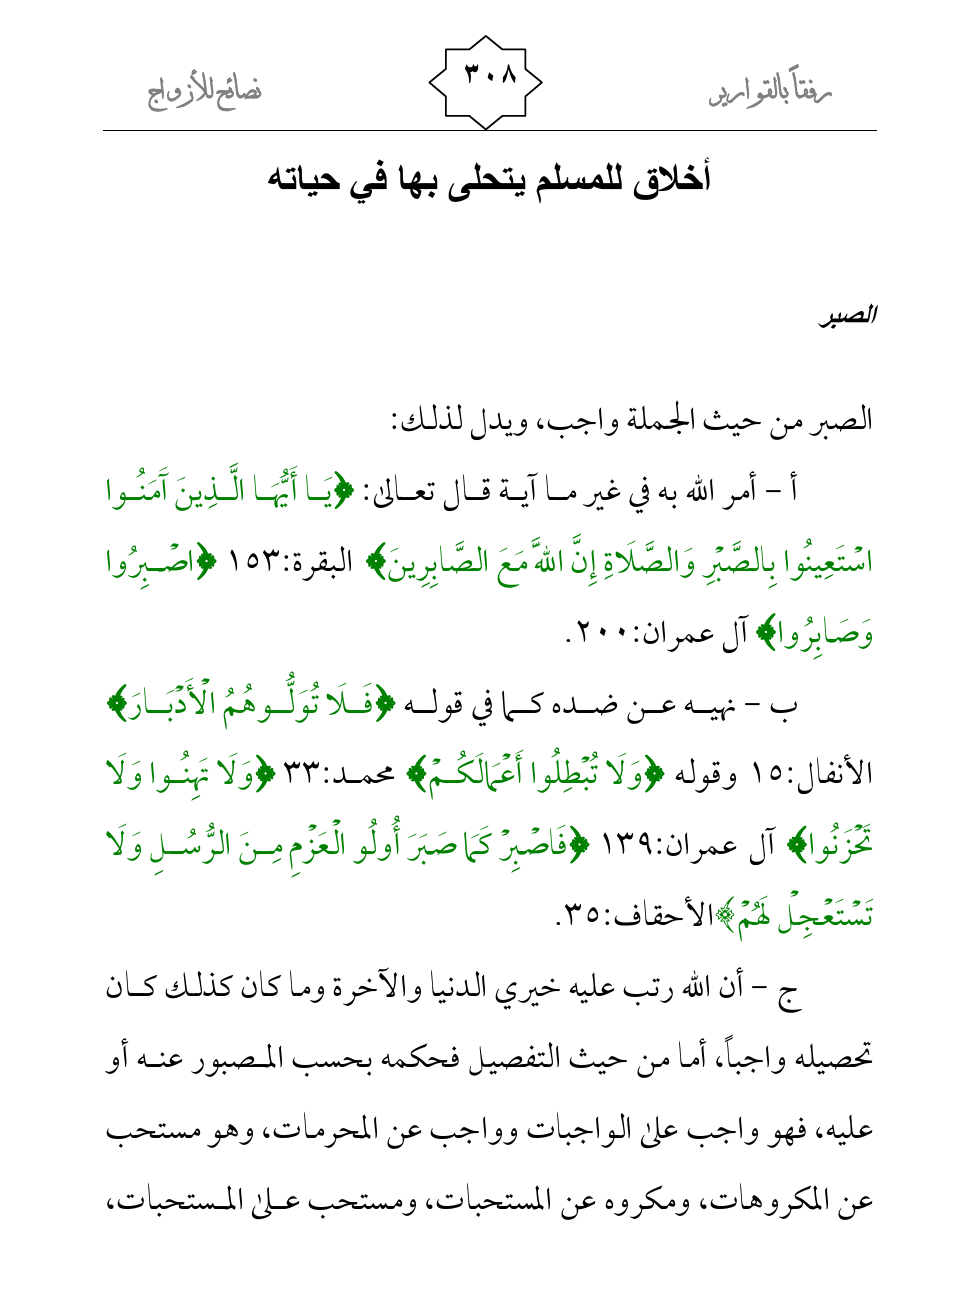 رفقاً بالقوارير
٣٠٨
نصائح للأزواج
أخلاق للمسلم يتحلى بها في حياته
الصبر
الصبر من حيث الجملة واجب، ويدل لذلك:
أ – أمر الله به في غير ما آية قال تعالى: ﴿يَا أَيُّهَا الَّذِينَ آمَنُوا
اسْتَعِينُوا بِالصَّبْرِ وَالصَّلَاةِ إِنَّ اللهَّ مَعَ الصَّابِرِينَ﴾ البقرة:١٥٣ ﴿اصْبِرُوا
وَصَابِرُوا﴾ آل عمران:٢٠٠.
ب – نهيه عن ضده كما في قوله ﴿فَلَا تُوَلُّوهُمُ الْأَدْبَارَ﴾
الأنفال:١٥ وقوله ﴿وَلَا تُبْطِلُوا أَعْمَالَكُمْ﴾ محمد:٣٣ ﴿وَلَا تَهِنُوا وَلَا
تَحْزَنُوا﴾ آل عمران:١٣٩ ﴿فَاصْبِرْ كَمَا صَبَرَ أُولُو الْعَزْمِ مِنَ الرُّسُلِ وَلَا
تَسْتَعْجِلْ لَهُمْ﴾الأحقاف:٣٥.
ج – أن الله رتب عليه خيري الدنيا والآخرة وما كان كذلك كان
تحصيله واجباً، أما من حيث التفصيل فحكمه بحسب المصبور عنه أو
عليه، فهو واجب على الواجبات وواجب عن المحرمات، وهو مستحب
عن المكروهات، ومكروه عن المستحبات، ومستحب على المستحبات،